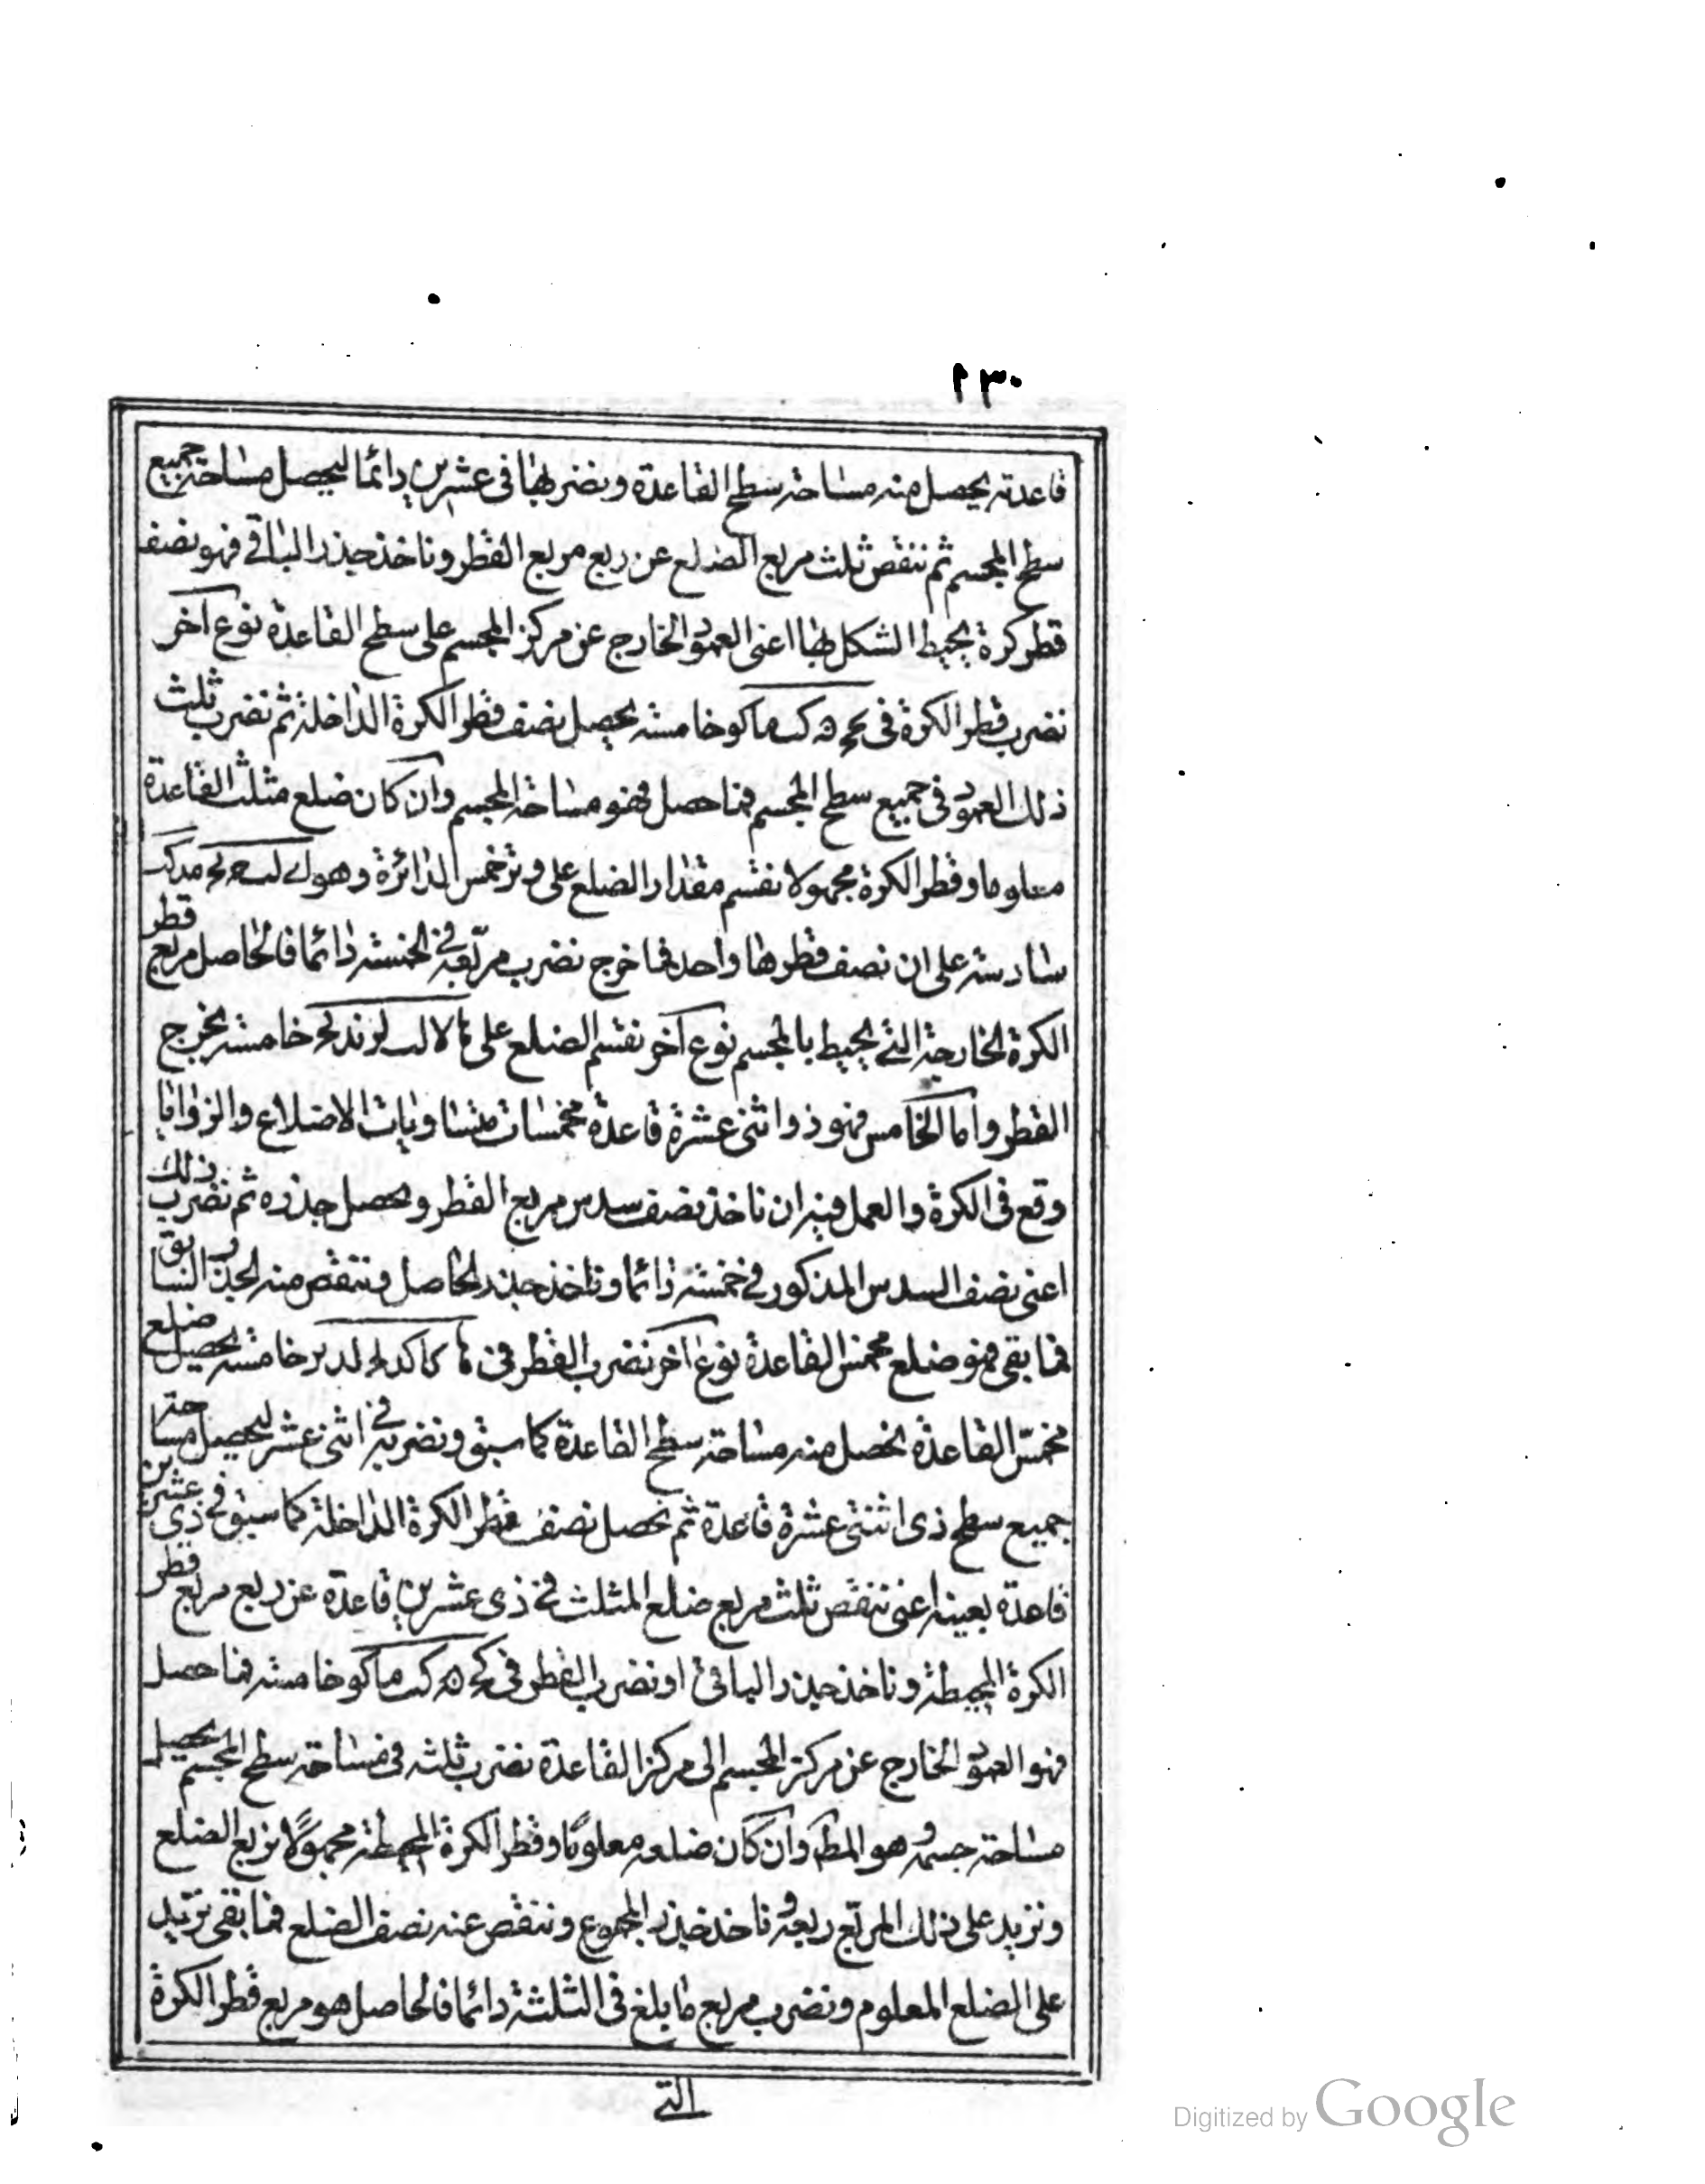 ١٣٠
قاعدته يحصل منه مساحة سطح القاعدة ونضربها فى عشرين دائما ليحصل مساحة جميع
سطح المجسم ثم ننقص ثلث مربع الضلع عن ربع مربع القطر وناخذ جذر الباقى فهو نصف
قطر كرة يحيط الشكل بها اعنى العمود الخارج عن مركز المجسم على سطح القاعدة نوع آخر
نضرب قطر الكرة فى كب ما كو خامسة يحصل نصف قطر الكرة الداخلة ثم نضرب ثلث
ذلك العمود فى جميع سطح المجسم فما حصل فهو مساحة المجسم وان كان ضلع مثلث القاعدة
معلوما وقطر الكرة مجهولا نقسم مقدار الضلع على وتر خمس الدائرة وهو مد كب
سادسة على ان نصف قطرها واحد فما خرج نضرب مربعه فى الخمسة دائما فالحاصل مربع قطر
الكرة الخارجة التى يحيط بالمجسم نوع آخر نقسم الضلع على خامسة يخرج
القطر واما الخامس فهو ذو اثنى عشرة قاعدة مخمسات متساويات الاضلاع والزوايا
وقع فى الكرة والعمل فيه ان ناخذ نصف سدس مربع القطر ونحصل جذره ثم نضرب ذلك
اعنى نصف السدس المذكور فى خمسة دائما وناخذ جذر الحاصل وننقص منه الجذر السابق
فما بقى فهو ضلع مخمس القاعدة نوع آخر نضرب القطر فى خامسة يحصل ضلع
مخمس القاعدة نحصل منه مساحة سطح القاعدة كما سبق ونضربه فى اثنى عشر ليحصل مساحة
جميع سطح ذى اثنتى عشرة قاعدة ثم نحصل نصف قطر الكرة الداخلة كما سبق فى ذى عشرين
قاعدة بعينه اعنى ننقص ثلث مربع ضلع المثلث فى ذى عشرين قاعدة عن ربع مربع قطر
الكرة المحيطة وناخذ جذر الباقى او نضرب القطر فى كب ما كو خامسة فما حصل
فهو العمود الخارج عن مركز المجسم الى مركز القاعدة نضرب ثلثه فى مساحة سطح المجسم يحصل
مساحة جسمه وهو المط وان كان ضلعه معلوما وقطر الكرة المحيطة مجهولا نربع الضلع
ونزيد على ذلك المربع ربعه وناخذ جذر المجموع وننقص عنه نصف الضلع فما بقى نزيد
على الضلع المعلوم ونضرب مربع ما بلغ فى الثلثة دائما فالحاصل هو مربع قطر الكرة
التى
Digitized by Google